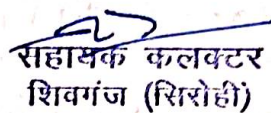 सहायक कलक्टर
शिवगंज (सिरोही)